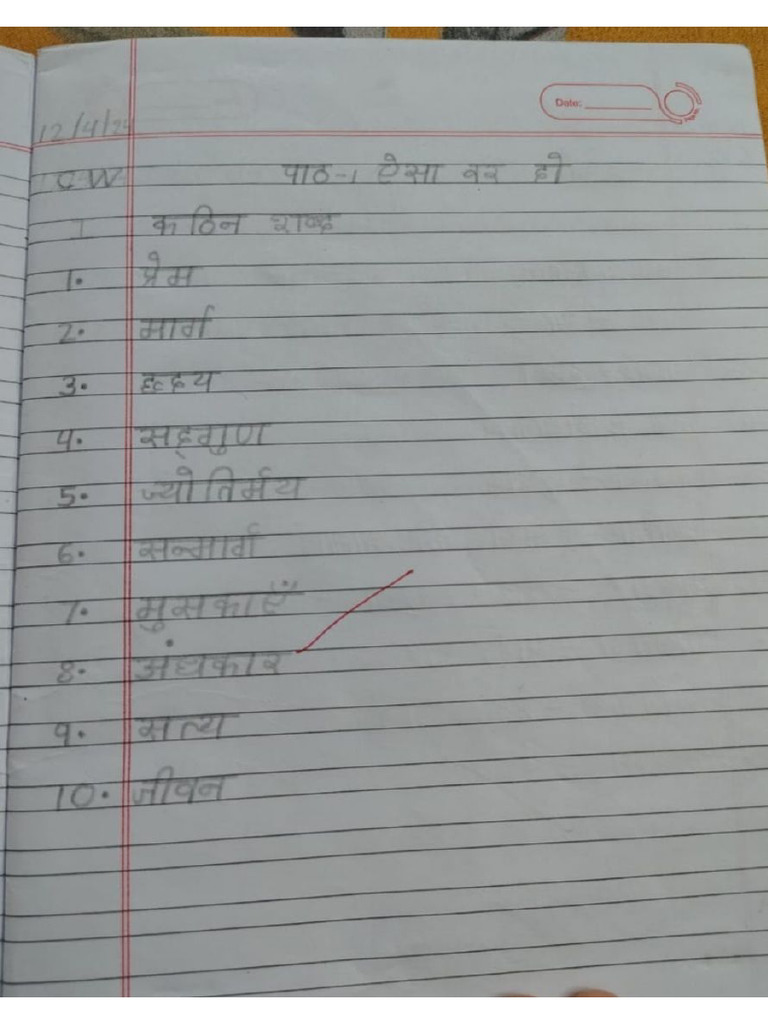 Date:
12/4/24
C.W पाठ-1 ऐसा वर दो
I कठिन शब्द
1. प्रेम
2. मार्ग
3. हृदय
4. सद्गुण
5. ज्योतिर्मय
6. सन्मार्ग
7. मुसकाएँ
8. अंधकार
9. सत्य
10. जीवन